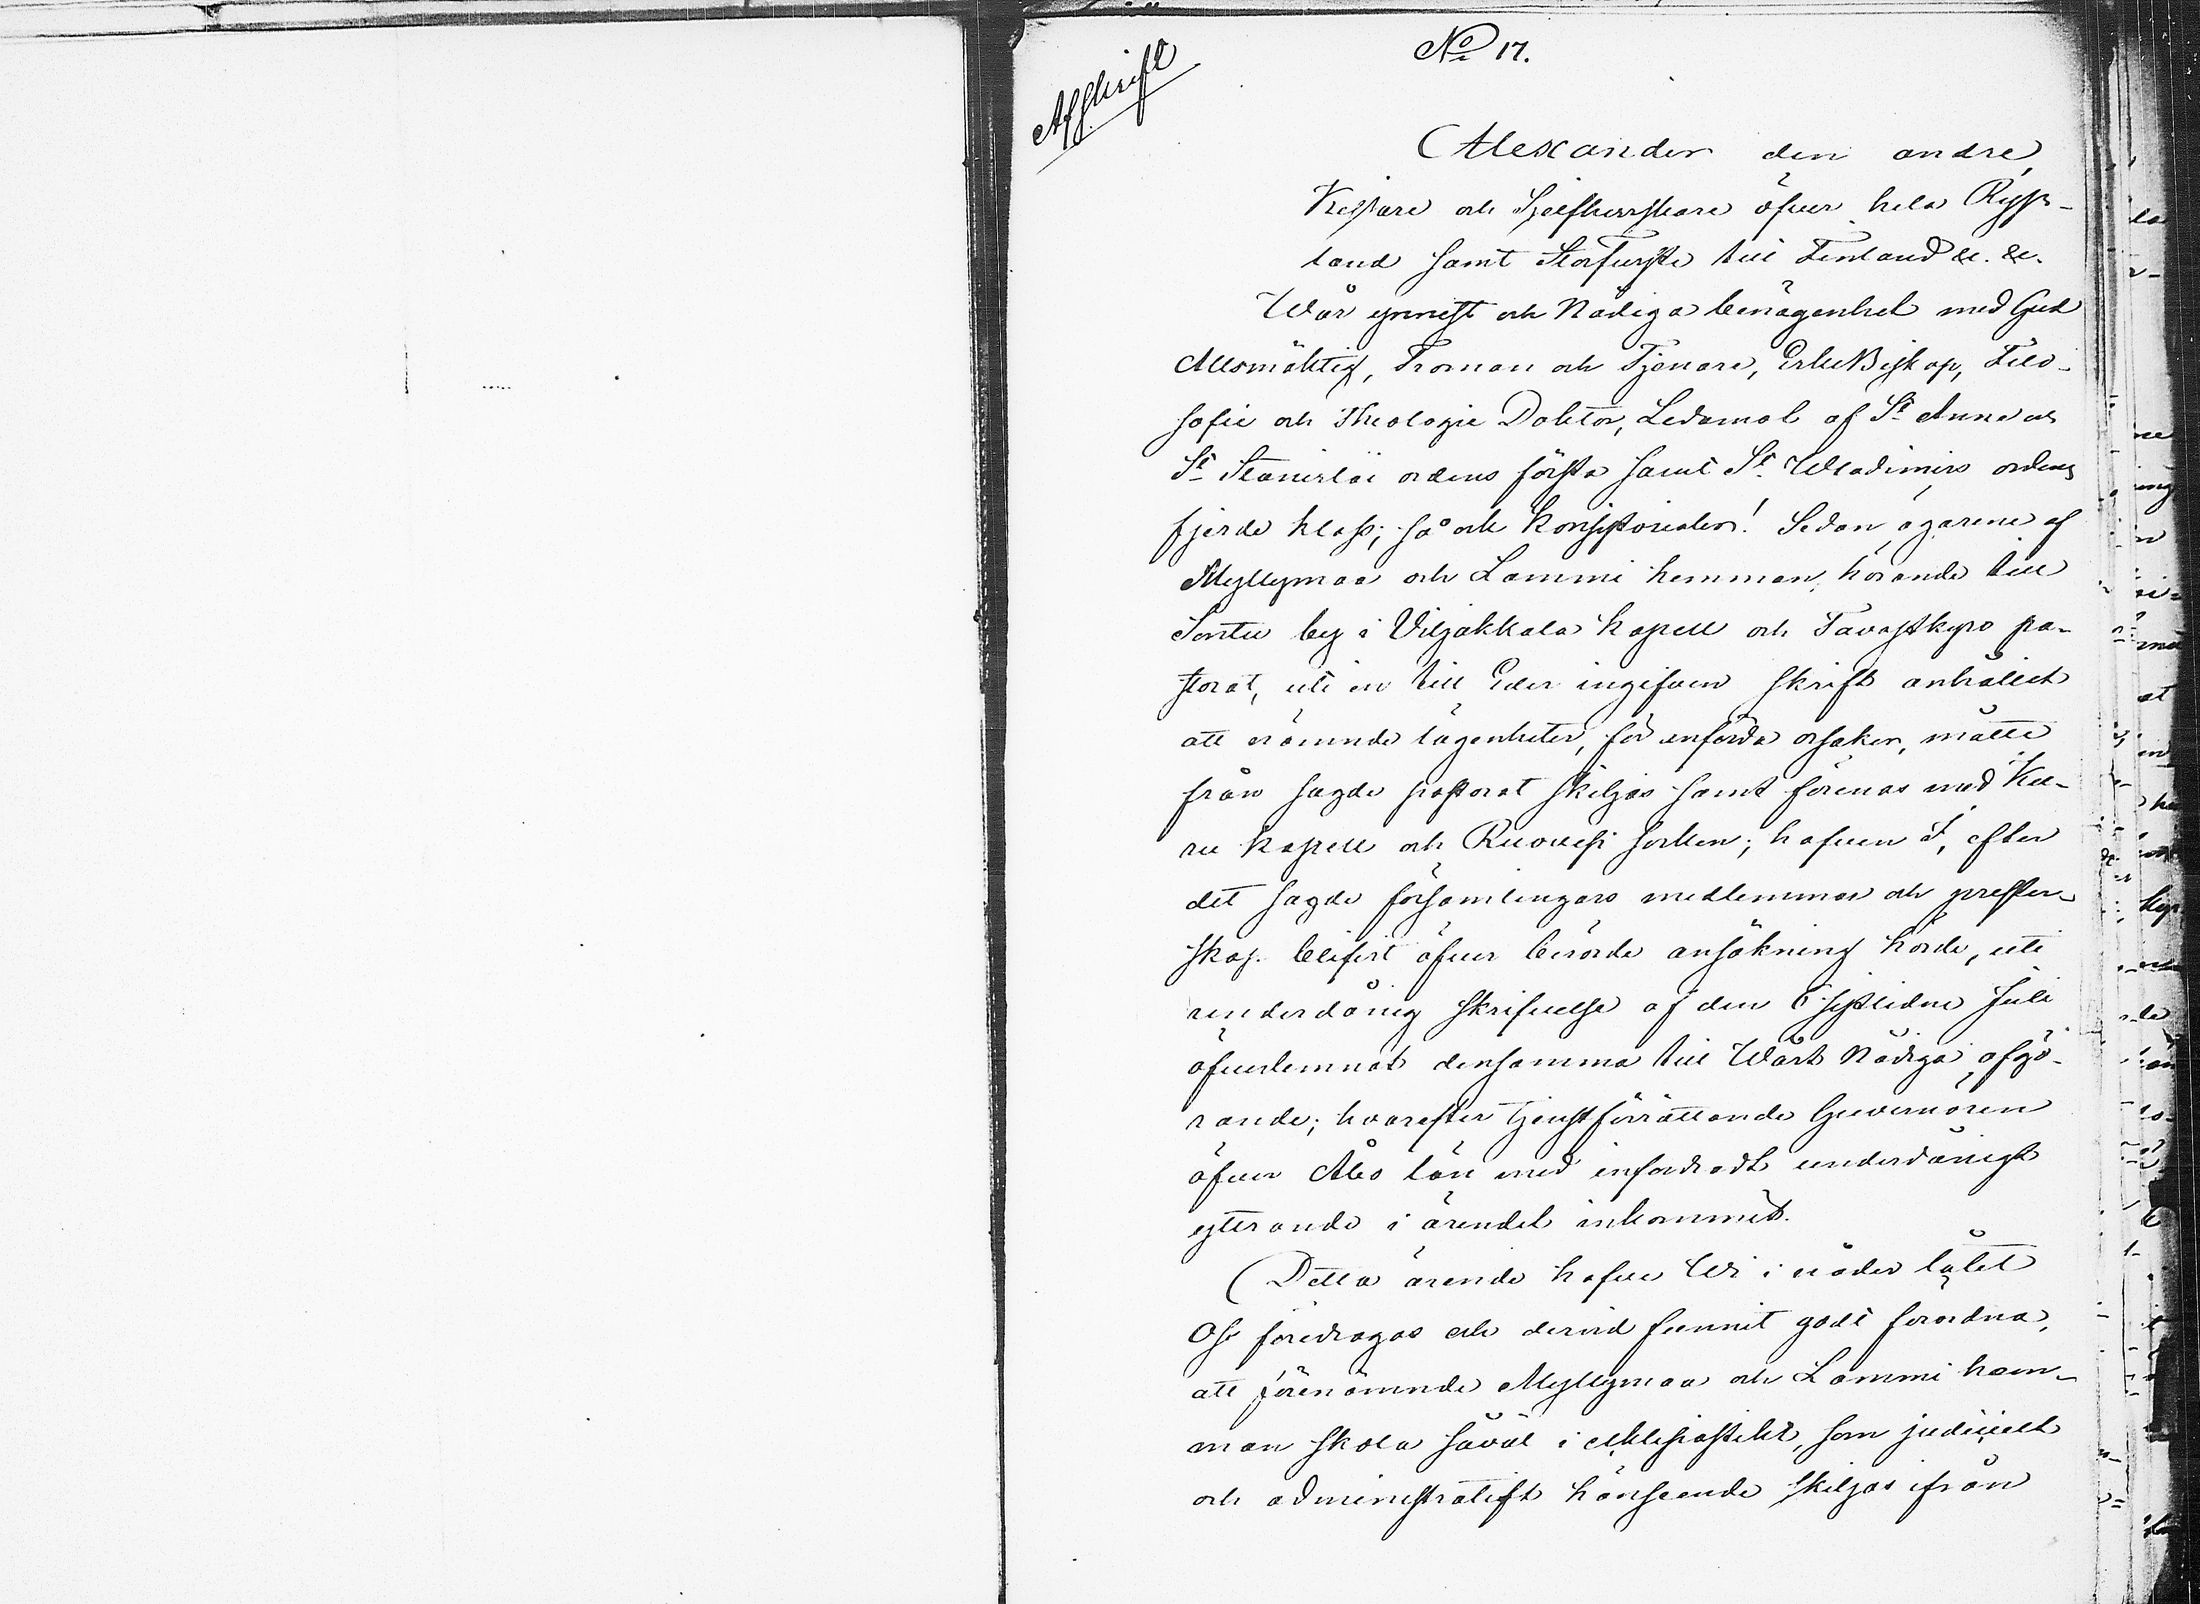 No 17.
Afskrift
Alexander den andre,
Kejsare och Sjelfherrskare öfver hela Ryss-
land samt Storfurste till Finland &c. &c.
Wår ynnest och Nådiga benägenhet med Gud
Allsmäktig, Troman och Tjenare, ErkeBiskop, Filo-
sofie och Theologie Doktor, Ledamot af St Annæ och
St Stanislai ordens första samt St Wladimirs ordens
fjerde klass, så ock Konsistorialer! Sedan egarene af
Myllymaa och Lammi hemman, hörande till
Sontu by i Viljakkala kapell och Tavastkyro pa-
storat, uti en till Eder ingifven skrift anhållit
att nämnde lägenheter, för anförda orsaker, måtte
från sagde pastorat skiljas samt förenas med Ku-
ru kapell och Ruovesi socken; hafven I, efter
det sagde församlingars medlemmar och prester-
skap blifvit öfver berörde ansökning hörde, uti
underdånig skrifvelse af den 6 sistlidne Juli
öfverlemnat densamma till Wårt Nådiga afgö-
rande; hvarefter tjenstförrättande Guvernören
öfver Åbo län med infordradt underdånigt
yttrande i ärendet inkommit.
Detta ärende hafve Wi i nåder låtit
Oss föredragas och dervid funnit godt förordna,
att förenämnde Myllymaa och Lammi hem-
man skola såväl i ecklesiastikt, som judicielt
och administratift hänseende skiljas ifrån